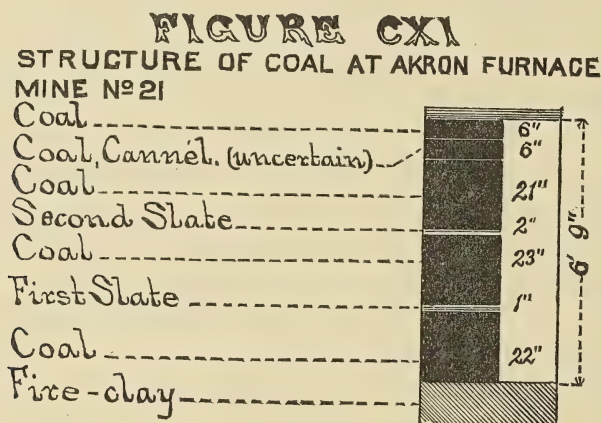 FIGURE CXI
STRUCTURE OF COAL AT AKRON FURNACE
MINE Nº 21
Coal 6"
Coal, Cannel. (uncertain) 6"
Coal 21"
Second Slate 2"
Coal 23"
First Slate 1"
Coal 22"
Fire-clay
6' 9"